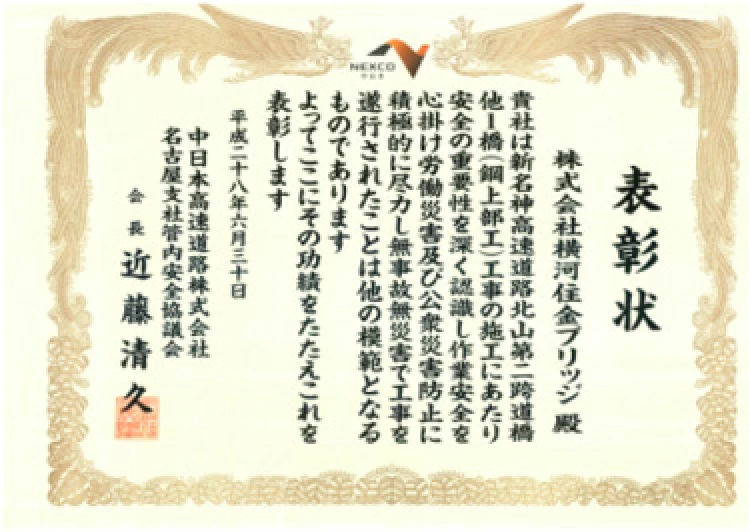 NEXCO
表彰状
株式会社横河住金ブリッジ 殿
貴社は新名神高速道路北山第二跨道橋
他1橋(鋼上部工)工事の施工にあたり
安全の重要性を深く認識し作業安全を
心掛け労働災害及び公衆災害防止に
積極的に尽力し無事故無災害で工事を
遂行されたことは他の模範となる
ものであります
よってここにその功績をたたえこれを
表彰します
平成二十八年六月三十日
中日本高速道路株式会社
名古屋支社管内安全協議会
会長 近藤清久